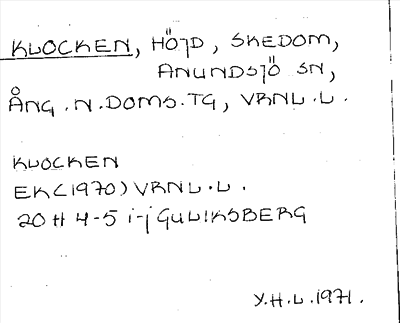 KLOCKEN, HÖJD, SKEDOM,
ANUNDSJÖ SN,
ÅNG.N.DOMS.TG, VRNL.L.
KLOCKEN
EK(1970)VRNL.L.
20 H 4-5 i-j GULIKSBERG
Y.H.L.1971.